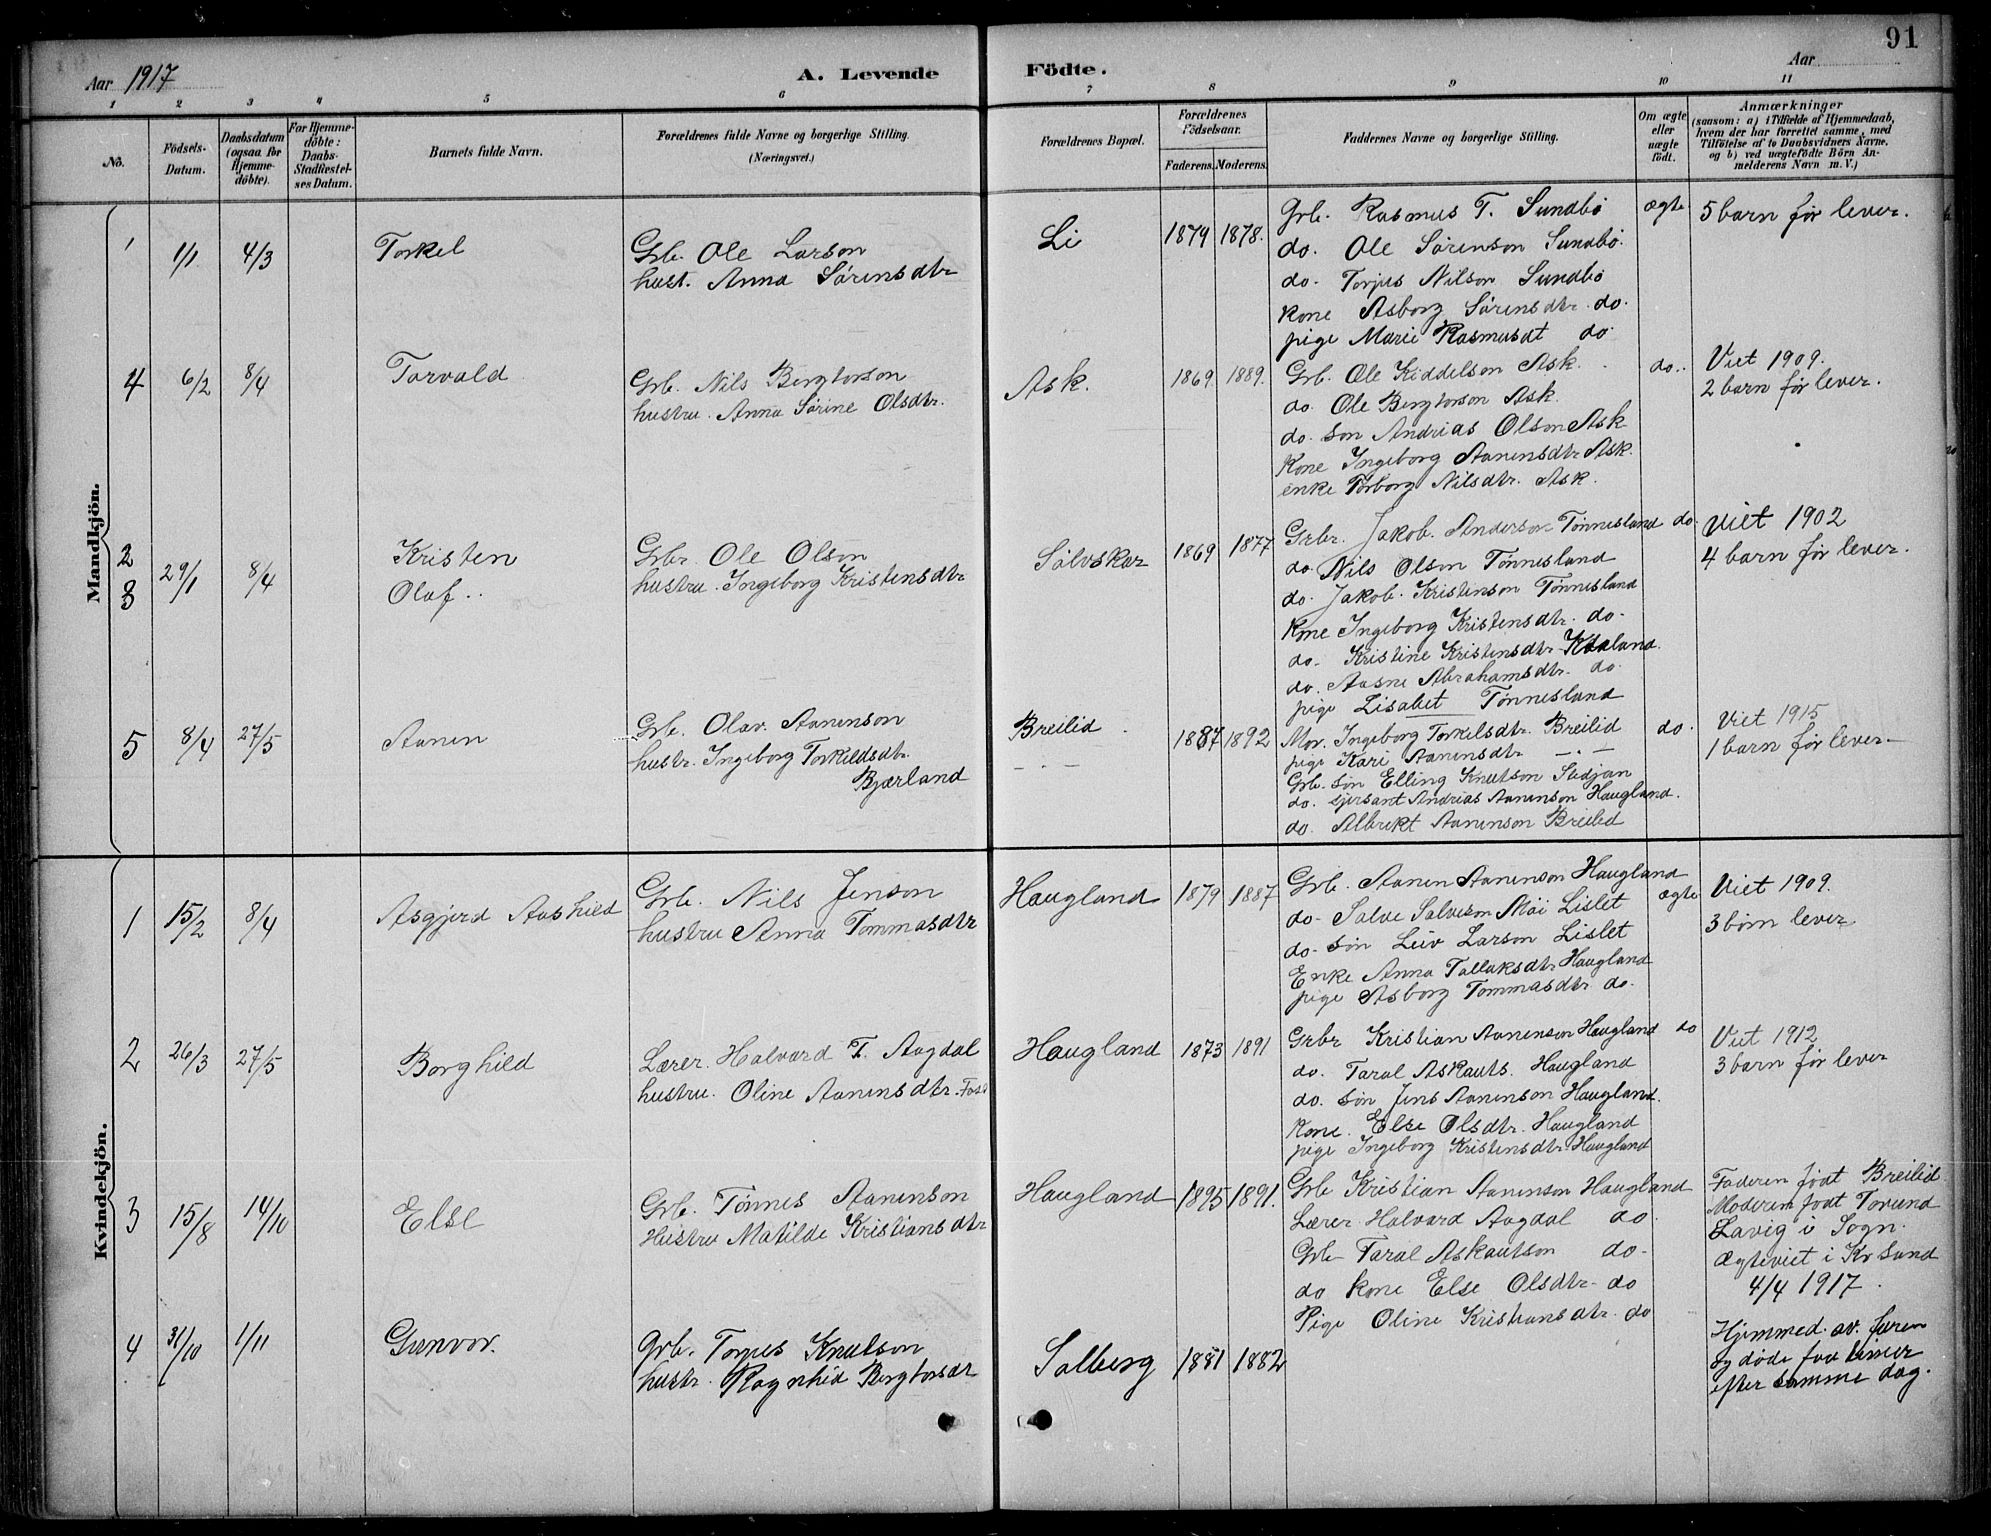 91
Aar 1917 A. Levende Födte. Aar
1 2 3 4 5 6 7 8 9 10 11
No.
Födsels-Datum.
Daabsdatum (ogsaa for Hjemme-döbte).
For Hjemme-döbte: Daabs-Stadfæstel-ses Datum.
Barnets fulde Navn.
Forældrenes fulde Navne og borgerlige Stilling. (Næringsvei.)
Forældrenes Bopæl.
Forældrenes Födselsaar.
Faderens. Moderens.
Faddernes Navne og borgerlige Stilling.
Om ægte eller uægte födt.
Anmærkninger
(saasom: a) i Tilfælde af Hjemmedaab, hvem der har forrettet samme, med Tilföielse af to Daabsvidners Navne, og b) ved uægtefödte Börn An-melderens Navn m. V.)
Mandkjön.
1 1/1 4/3 Torkel
Grb. Ole Larson
hust. Anna Sørensdtr
Li 1879 1878.
Grb. Rasmus T. Sundbø
do. Ole Sørenson Sundbø.
do. Torjus Nilson Sundbø
kone Asborg Sørensdtr. do.
pige Marie Rasmusdt do.
ægte 5 barn før lever.
4 6/2 8/4 Torvald
Grb. Nils Bergtorson
hustru. Anna Sørine Olsdtr.
Ask. 1869 1889.
Grb. Ole Kiddelson Ask.
do. Ole Bergtorson Ask.
do. søn Andrias Olson Ask
Kone Ingeborg Aanensdtr Ask.
enke Torborg Nilsdtr. Ask.
do.. Viet 1909.
2 barn før lever.
2
3 29/1 8/4 Kristen
Olaf..
Grbr. Ole Olson
hustru. Ingeborg Kristensdtr
Sølvskar 1869 1877
Grbr. Jakob. Anderson Tønnesland
do. Nils Olson Tønnesland
do. Jakob. Kristenson Tønnesland
kone Ingeborg Kristensdtr. do.
do. Kristine Kristensdtr
do. Aasne Abrahamsdtr. do.
pige Lisabet Tønnesland
do. Viet 1902
4 barn før lever.
5 8/4 27/5 Aanen
Grb. Olav. Aanenson
hustr. Ingeborg Torkildsdtr.
Bjærland
Breilid 1887 1892
Mor. Ingeborg Torkelsdtr. Breilid
pige Kari Aanensdtr — . —
Grb. søn Elling Knutson Stidjan
do. Andrias Aanenson Haugland.
do. Albrekt Aanenson Breilid
do. Viet 1915
1 barn før lever.
Kvindekjön.
1 15/2 8/4 Asgjerd Aashild
Grb. Nils Jenson
hustru Anna Tommasdtr
Haugland 1879 1887
Grb. Aanen Aanenson Haugland
do. Salve Salveson Møi Lislet
do. søn Leiv Larson Lislet
Enke Anna Tallaksdtr Haugland
pige Asborg Tommasdtr do.
ægte Viet 1909.
3 børn lever
2 26/3 27/5 Borghild
Lærer. Halvard T. Aagdal
hustru. Oline Aanensdtr.
Haugland 1873 1891
Grbr Kristian Aanenson Haugland
do. Taral Askauts. Haugland
do. søn Jens Aanenson Haugland.
Kone. Else Olsdtr. Haugland
pige Ingeborg Kristensdtr Haugland
do Viet 1912
3 barn før lever
3 15/8 14/10 Else
Grb. Tønnes Aanenson
Hustru Matilde Kristiansdtr
Haugland 1895 1891.
Grb Kristian Aanenson Haugland
Lærer. Halvard Aagdal do.
Grb Taral Askautson do.
do kone Else Olsdtr do
Pige Oline Kristiansdtr. do
Faderen født Breilid
Moderen født
Lavig i Sogn.
Ægteviet i Kr Sand
4/4 1917.
4 31/10 1/11 Gunvor.
Grb. Torjus Knutson
hustr. Ragnhild Bergtorsdt
Solberg 1881 1882
Hjemmed. av. faren
og døde faa timer
efter samme dag.